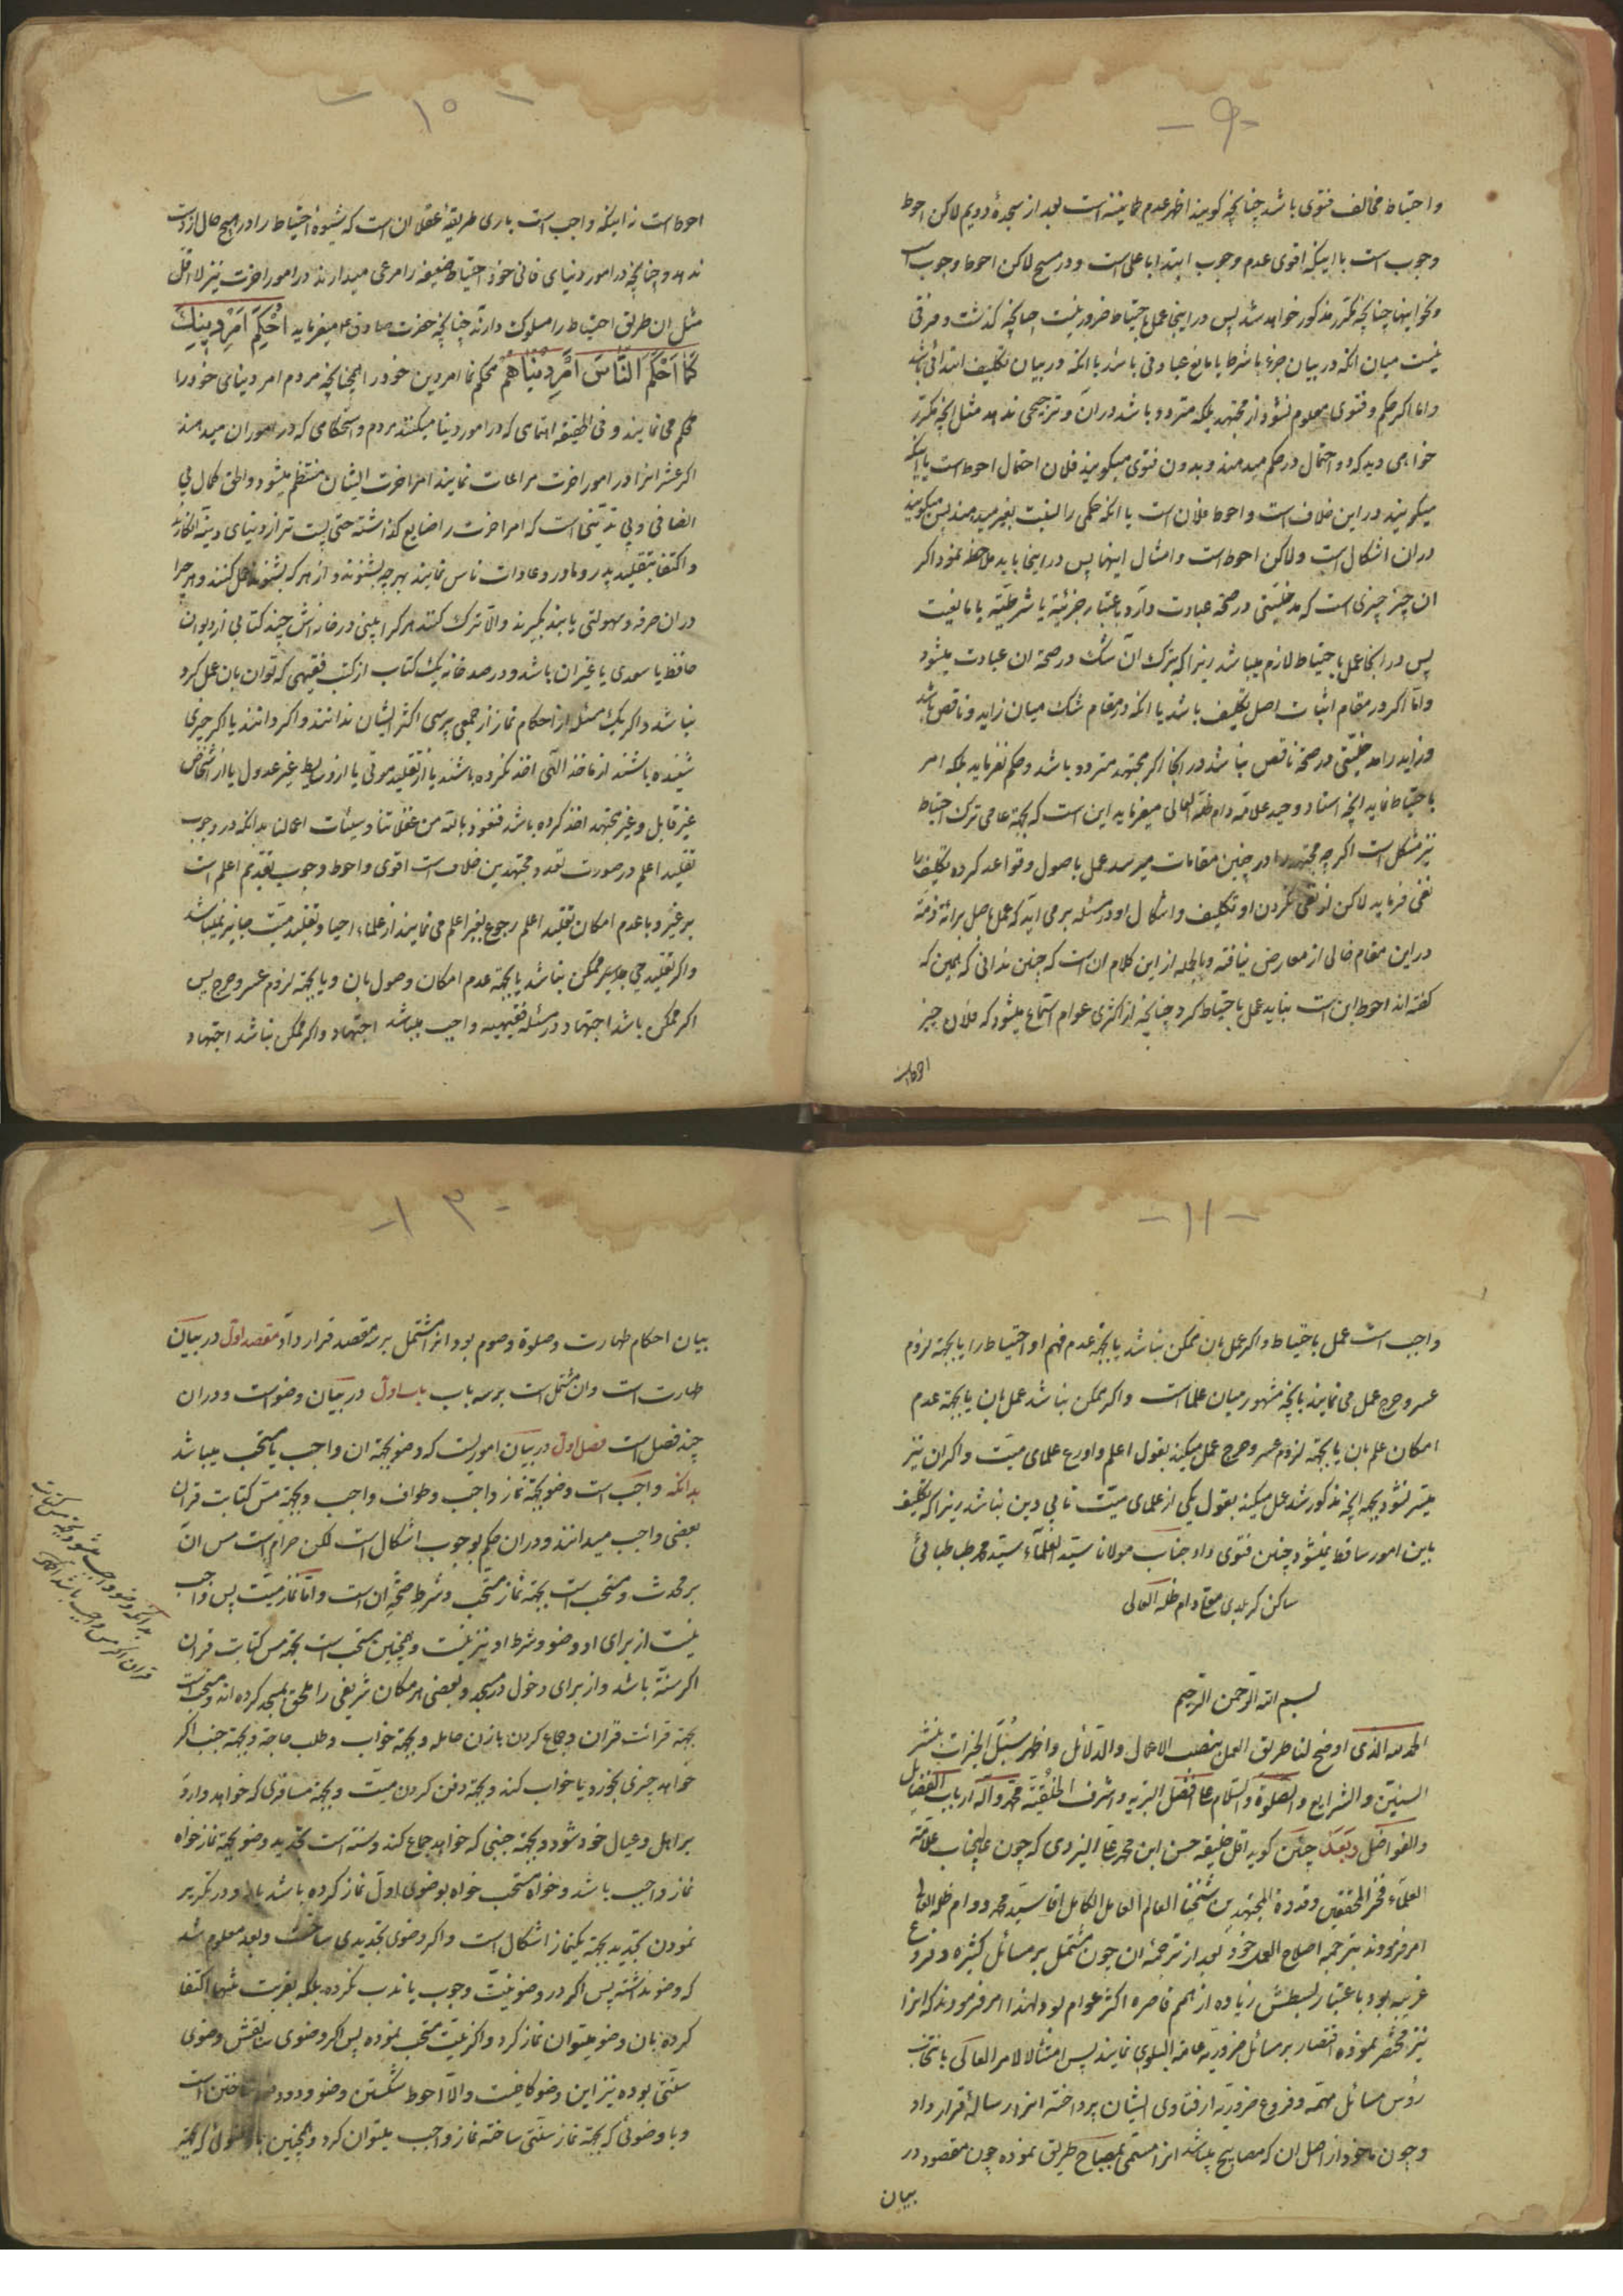 -۹-
و احتیاط مخالف فتوی باشد چنانچه کویند اظهر عدم طمانینه است بعد از سجدهٔ دویم لاکن احوط
وجوب است با اینکه اقوی عدم وجوب ابتدا باعلی است و در مسح لاکن احوط وجوب است
و نحو اینها چنانچه مکرر مذکور خواهد شد پس در اینجا عمل باحتیاط ضرور نیست چنانچه کذشت و فرقی
نیست میان انکه در بیان جزء یا شرط یا مانع عبادتی باشد یا انکه در بیان تکلیف ابتدائی باشد
و اما اکر حکم و فتوی معلوم نشود از مجتهد بلکه متردد باشد در ان و ترجیحی ندهد مثل انچه مکرر
خواهی دید که دو احتمال در حکم میدهند و بدون فتوی میکویند فلان احتمال احوط است یا اینکه
میکویند در این خلاف است و احوط فلان است یا انکه حکمی را نسبت بغیر میدهند پس میکویند
در ان اشکال است ولاکن احوط است و امثال اینها پس در اینجا باید ملاحظه نمود اکر
ان چیز چیزی است که مدخلیتی در صحة عبادت دارد باعتبار جزئیة یا شرطیة یا مانعیت
پس در انجا عمل باحتیاط لازم میباشد زیرا که بترک ان شک در صحة ان عبادت میشود
و اما اکر در مقام اثبات اصل تکلیف باشد یا انکه در مقام شک میان زاید و ناقص باشد
و زاید را مدخلیتی در صحة ناقص نباشد در انجا اکر مجتهد متردد باشد و حکم نفرماید بلکه امر
باحتیاط نماید انچه استاد وحید علامه دام ظله العالی میفرماید این است که بجهة عامی ترک احتیاط
نیز مشکل است اکرچه مجتهد را در چنین مقامات میرسد عمل باصول و قواعد کرده تکلیف را
نفی فرماید لاکن از نفی نکردن او تکلیف و اشکال او در مسئله برمی اید که عمل باصل برائة ذمة
در این مقام خالی از معارض نیافته و بالجمله از این کلام ان است که چنین ندانی که همین که
کفته اند احوط این است نباید عمل باحتیاط کرد چنانچه از اکثری عوام استماع میشود که فلان چیز
احوط است
-۱۰-
احوط است نه اینکه واجب است باری طریقهٔ عقلا ان است که شیوهٔ احتیاط را در هیچ حال از دست
ندهد و چنانچه در امور دنیای فانی خود احتیاط ضعیفه را مرعی میدارند در امور اخرت نیز لا اقل
مثل ان طریق احتیاط را مسلوک دارند چنانچه حضرت صادق ع میفرماید اَحْکِمْ اَمْرَ دِینِكَ
کَمٰا اَحْکَمَ النّٰاسُ اَمْرَ دُنْیٰاهُمْ محکم نما امر دین خود را همچنانچه مردم امر دنیای خود را
محکم می نمایند و فی الحقیقه اهتمامی که در امور دنیا میکنند مردم و استحکامی که در امور ان میدهند
اکر عشر انرا در امور اخرت مراعات نمایند امر اخرت ایشان منتظم میشود و الحق کمال بی
انصافی و بی تدینی است که امر اخرت را ضایع کذاشته حتی پست تر از دنیای دنیه انکارند
و اکتفا بتقلید پدر و مادر و عادات ناس نمایند بهرچه بشنوند و از هر که بشنوند عمل کنند و هرچه را
در ان حرفه و سهولتی یابند بکیرند و الا ترک کنند هر کرا بینی در خانه اش چند کتابی از دیوان
حافظ یا سعدی یا غیر ان باشد و در صد خانه یک کتاب از کتب فقیهی که توان بان عمل کرد
نباشد و اکر یک مسئله از احکام نماز از جمعی پرسی اکثر ایشان ندانند و اکر دانند یا اکر چیزی
شنیده باشند از ماخذ الهی اخذ نکرده باشند یا از تقلید موتی یا از وسایط غیر عدول یا از اشخاص
غیر قابل و غیر مجتهد اخذ کرده باشد فنعوذ بالله من غفلاتنا و سیئات اعمالنا بدانکه در وجوب
تقلید اعلم در صورت تعدد مجتهدین خلاف است اقوی و احوط وجوب تقدیم اعلم است
بر غیر و با عدم امکان تقلید اعلم رجوع بغیر اعلم می نمایند از علماء احیا و تقلید میت جایز نمیباشد
و اکر تقلید حی جایز ممکن نباشد یا بجهة عدم امکان وصول بان و یا بجهة لزوم عسر و حرج پس
اکر ممکن باشد اجتهاد در مسئله فقیهیه واجب میباشد اجتهاد و اکر ممکن نباشد اجتهاد
-۱۱-
واجب است عمل باحتیاط و اکر عمل بان ممکن نباشد یا بجهة عدم فهم او احتیاط را یا بجهة لزوم
عسر و حرج عمل می نمایند بانچه مشهور میان علما است و اکر ممکن نباشد عمل بان یا بجهة عدم
امکان علم بان یا بجهة لزوم عسر و حرج عمل میکند بقول اعلم و اورع علمای میت و اکر ان نیز
میسر نشود بجهة انچه مذکور شد عمل میکند بقول یکی از علمای میت تا بی دین نباشد زیرا که تکلیف
باین امور ساقط نمیشود چنین فتوی داد جناب مولانا سید العلماء سید محمد طباطبائی
ساکن کربلای معلی دام ظله العالی
بسم الله الرحمن الرحیم
الحمد لله الذی اوضح لنا طریق العمل بنصب الاعمال و الدلائل و اظهر سبل الخیرات بنشر
السنن و الشرایع و الصلوة و السلام علی افضل البریه و اشرف الخلیقة محمد و اله ارباب الفضایل
و الفواضل و بعد چنین کوید اقل خلیقه حسن ابن محمد علی الیزدی که چون عالیجناب علامة
العلماء فخر المحققین و قدوة المجتهدین شیخنا العالم العامل الکامل اقا سید محمد دام ظله العالی
امر فرمودند بترجمه اصلاح العمل خود بعد از ترجمهٔ ان چون مشتمل بر مسائل کثیره و فروع
غریبه بود باعتبار بسطش زیاده از فهم قاصره اکثر عوام بود لهذا امر فرمودند که انرا
نیز مختصر نموده اقتصار بر مسائل ضروریه عامة البلوی نمایند پس امتثالا لامر العالی بانتخاب
رؤس مسائل مهمه و فروع ضروریه از فتاوی ایشان پرداخته انرا رسالهٔ قرار داد
و چون ماخوذ از اصل ان که مصابیح میباشد انرا مسمی بمصباح طریق نموده چون مقصود در
بیان
-۱۲-
بیان احکام طهارت و صلوة و صوم بود انرا مشتمل بر سه مقصد قرار داد مقصد اول در بیان
طهارت است و ان مشتمل است بر سه باب باب اول در بیان وضو است و در ان
چند فصل است فصل اول در بیان اموریست که وضو بجهة ان واجب یا مستحب میباشد
بدانکه واجب است وضو بجهة نماز واجب و طواف واجب و بجهة مس کتابت قران
بعضی واجب میدانند و در ان حکم بوجوب اشکال است لکن حرام است مس ان
بر محدث و مستحب است بجهة نماز مستحب و شرط صحة ان است و اما نماز میت پس واجب
نیست از برای او وضو و شرط او نیز نیست و همچنین مستحب است بجهة مس کتابت قران
اکر سنة باشد و از برای دخول در مسجد و بعضی هر مکان شریفی را ملحق بمسجد کرده اند و مستحب است
بجهة قرائت قران و جماع کردن با زن حامله و بجهة خواب و طلب حاجة و بجهة جنب اکر
خواهد چیزی بخورد یا خواب کند و بجهة دفن کردن میت و بجهة مسافری که خواهد وارد
بر اهل و عیال خود شود و بجهة جنبی که خواهد جماع کند و سنة است تجدید وضو بجهة نماز خواه
نماز واجب باشد و خواه مستحب خواه بوضوی اول نماز کرده باشد یا نه و در تکریر
نمودن تجدید بجهة یکنماز اشکال است و اکر وضوی تجدیدی ساخت و بعد معلوم شد
که وضو نداشته پس اکر در وضو نیت وجوب یا ندب نکرده بلکه بقربت تنها اکتفا
کرده بان وضو میتوان نماز کرد و اکر نیت مستحب نموده پس اکر وضوی سابقش وضوی
سنتی بوده نیز این وضو کافیست و الا احوط شکستن وضو و دوباره ساختن است
و با وضوئی که بجهة نماز سنتی ساخته نماز واجب میتوان کرد و همچنین با وضوئی که بجهة
بدانکه وضو واجب میشود بجهة مس کتابت
قران اکر مس واجب باشد